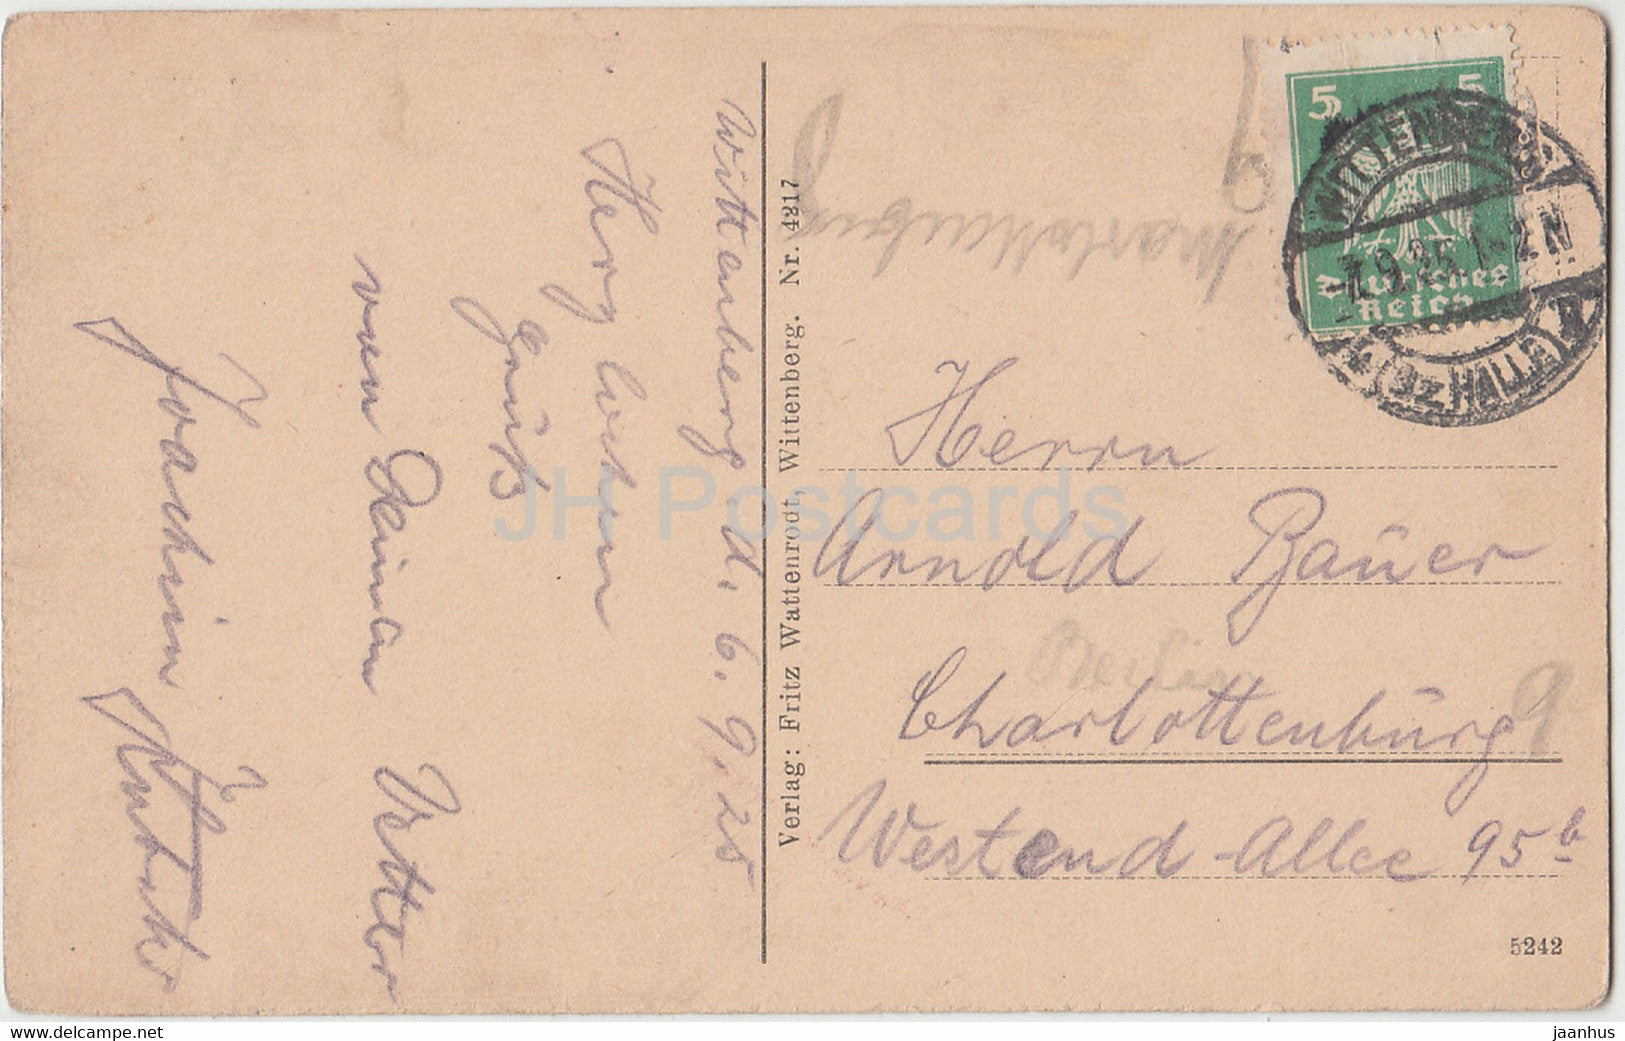 Wittenberg d. 6. 9. 25
Herzlichen
Gruß
von Deinem Vetter
Joachim
Verlag: Fritz Wattenrodt, Wittenberg. Nr. 4217
5 5
Deutsches
Reich
WITTENBERG
7.9.25.1-2N
(BZ HALLE)
Charlottenburg 9
Herrn
Arnold Bauer
Berlin
Charlottenburg 9
Westend-Allee 95 b
5242
JH Postcards
delcampe.net
jaanhus